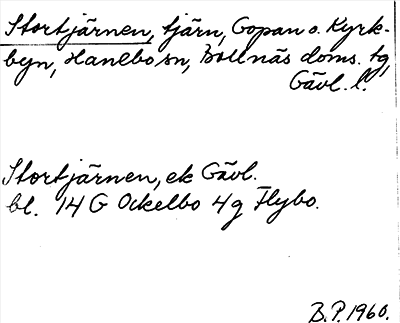 Stortjärnen, tjärn, Gopan o. Kyrk-
byn, Hanebo sn, Bollnäs doms. tg,
Gävl. l.
Stortjärnen, ek Gävl.
bl. 14 G Ockelbo 4 g Flybo.
B.P. 1960.